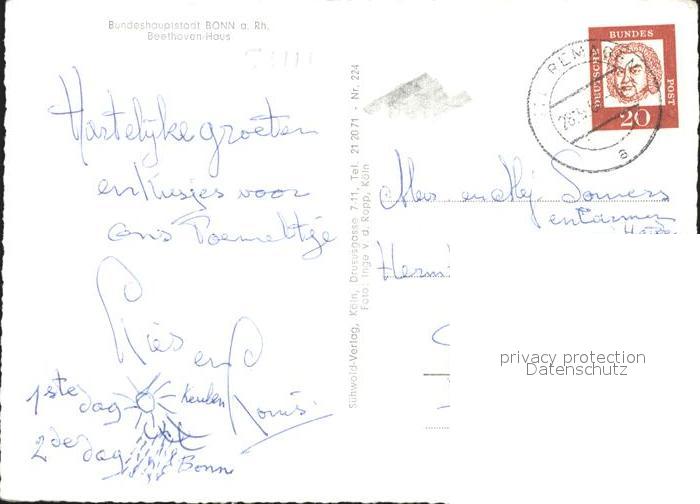 Bundeshauptstadt BONN a. Rh.
Beethoven-Haus
Hartelijke groeten
en kusjes voor
ons Poemeltje
Ries en
Louis.
1ste dag Keulen
2de dag Bonn
Sühwold-Verlag, Köln, Drususgasse 7-11, Tel. 21 20 71 - Nr. 224
Foto: Inge v. d. Ropp, Köln
DEUTSCHE BUNDES POST
20
REMAGEN
a
en Mej Somers
privacy protection
Datenschutz